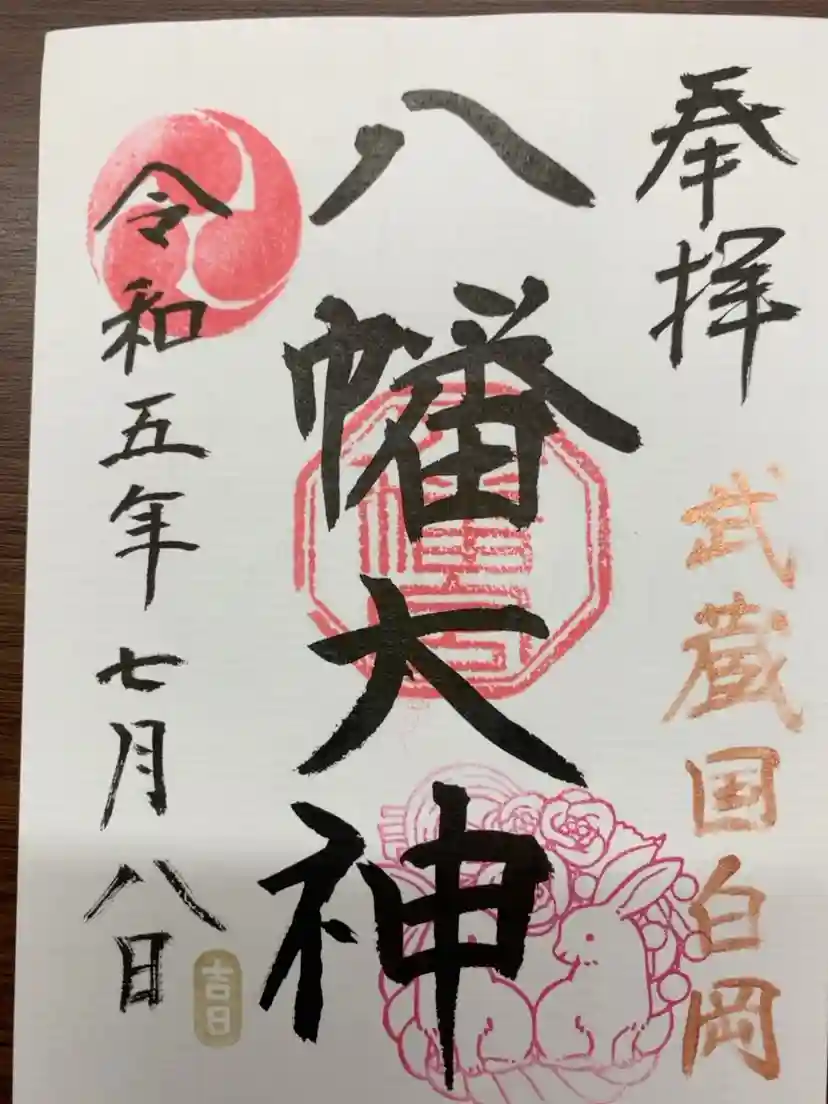 奉拝
武蔵国白岡
八幡大神
令和五年七月八日
吉日